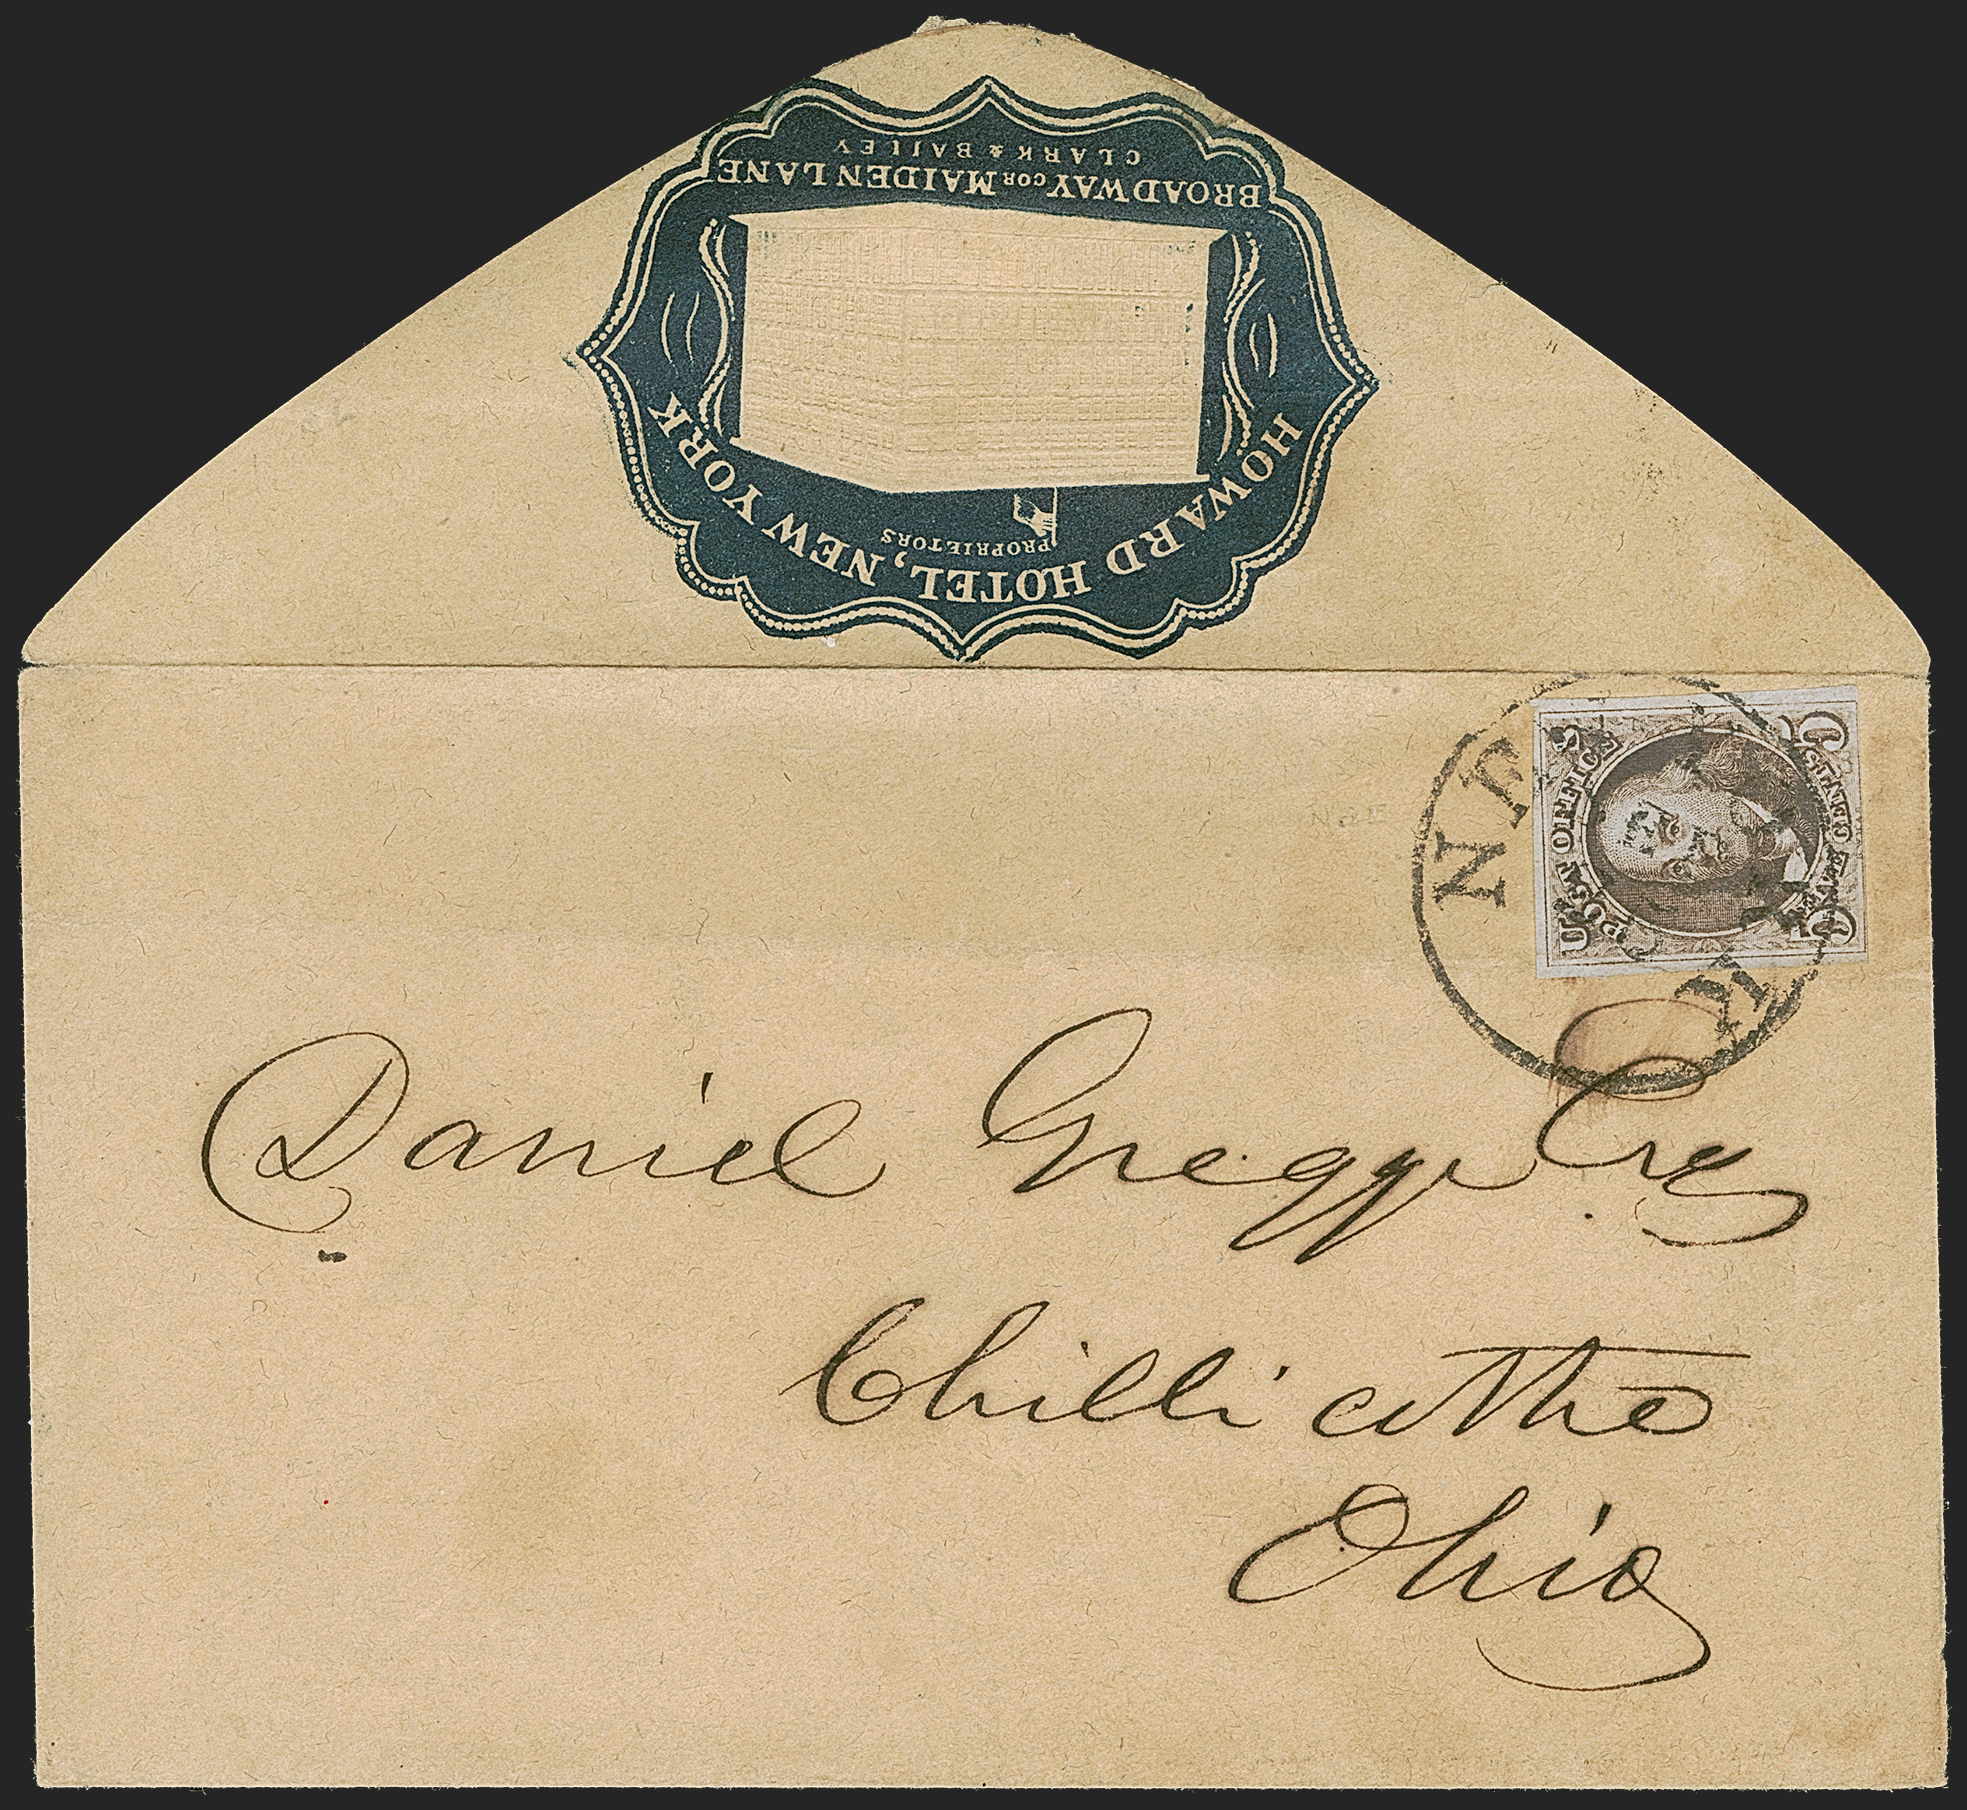 BROADWAY COR MAIDEN LANE
CLARK & BAILEY
HOWARD HOTEL, NEW YORK
PROPRIETORS
NE
K
U S
POST OFFICE
FIVE CENTS
5 5
Daniel Gregg Esq
Chillicothe
Ohio